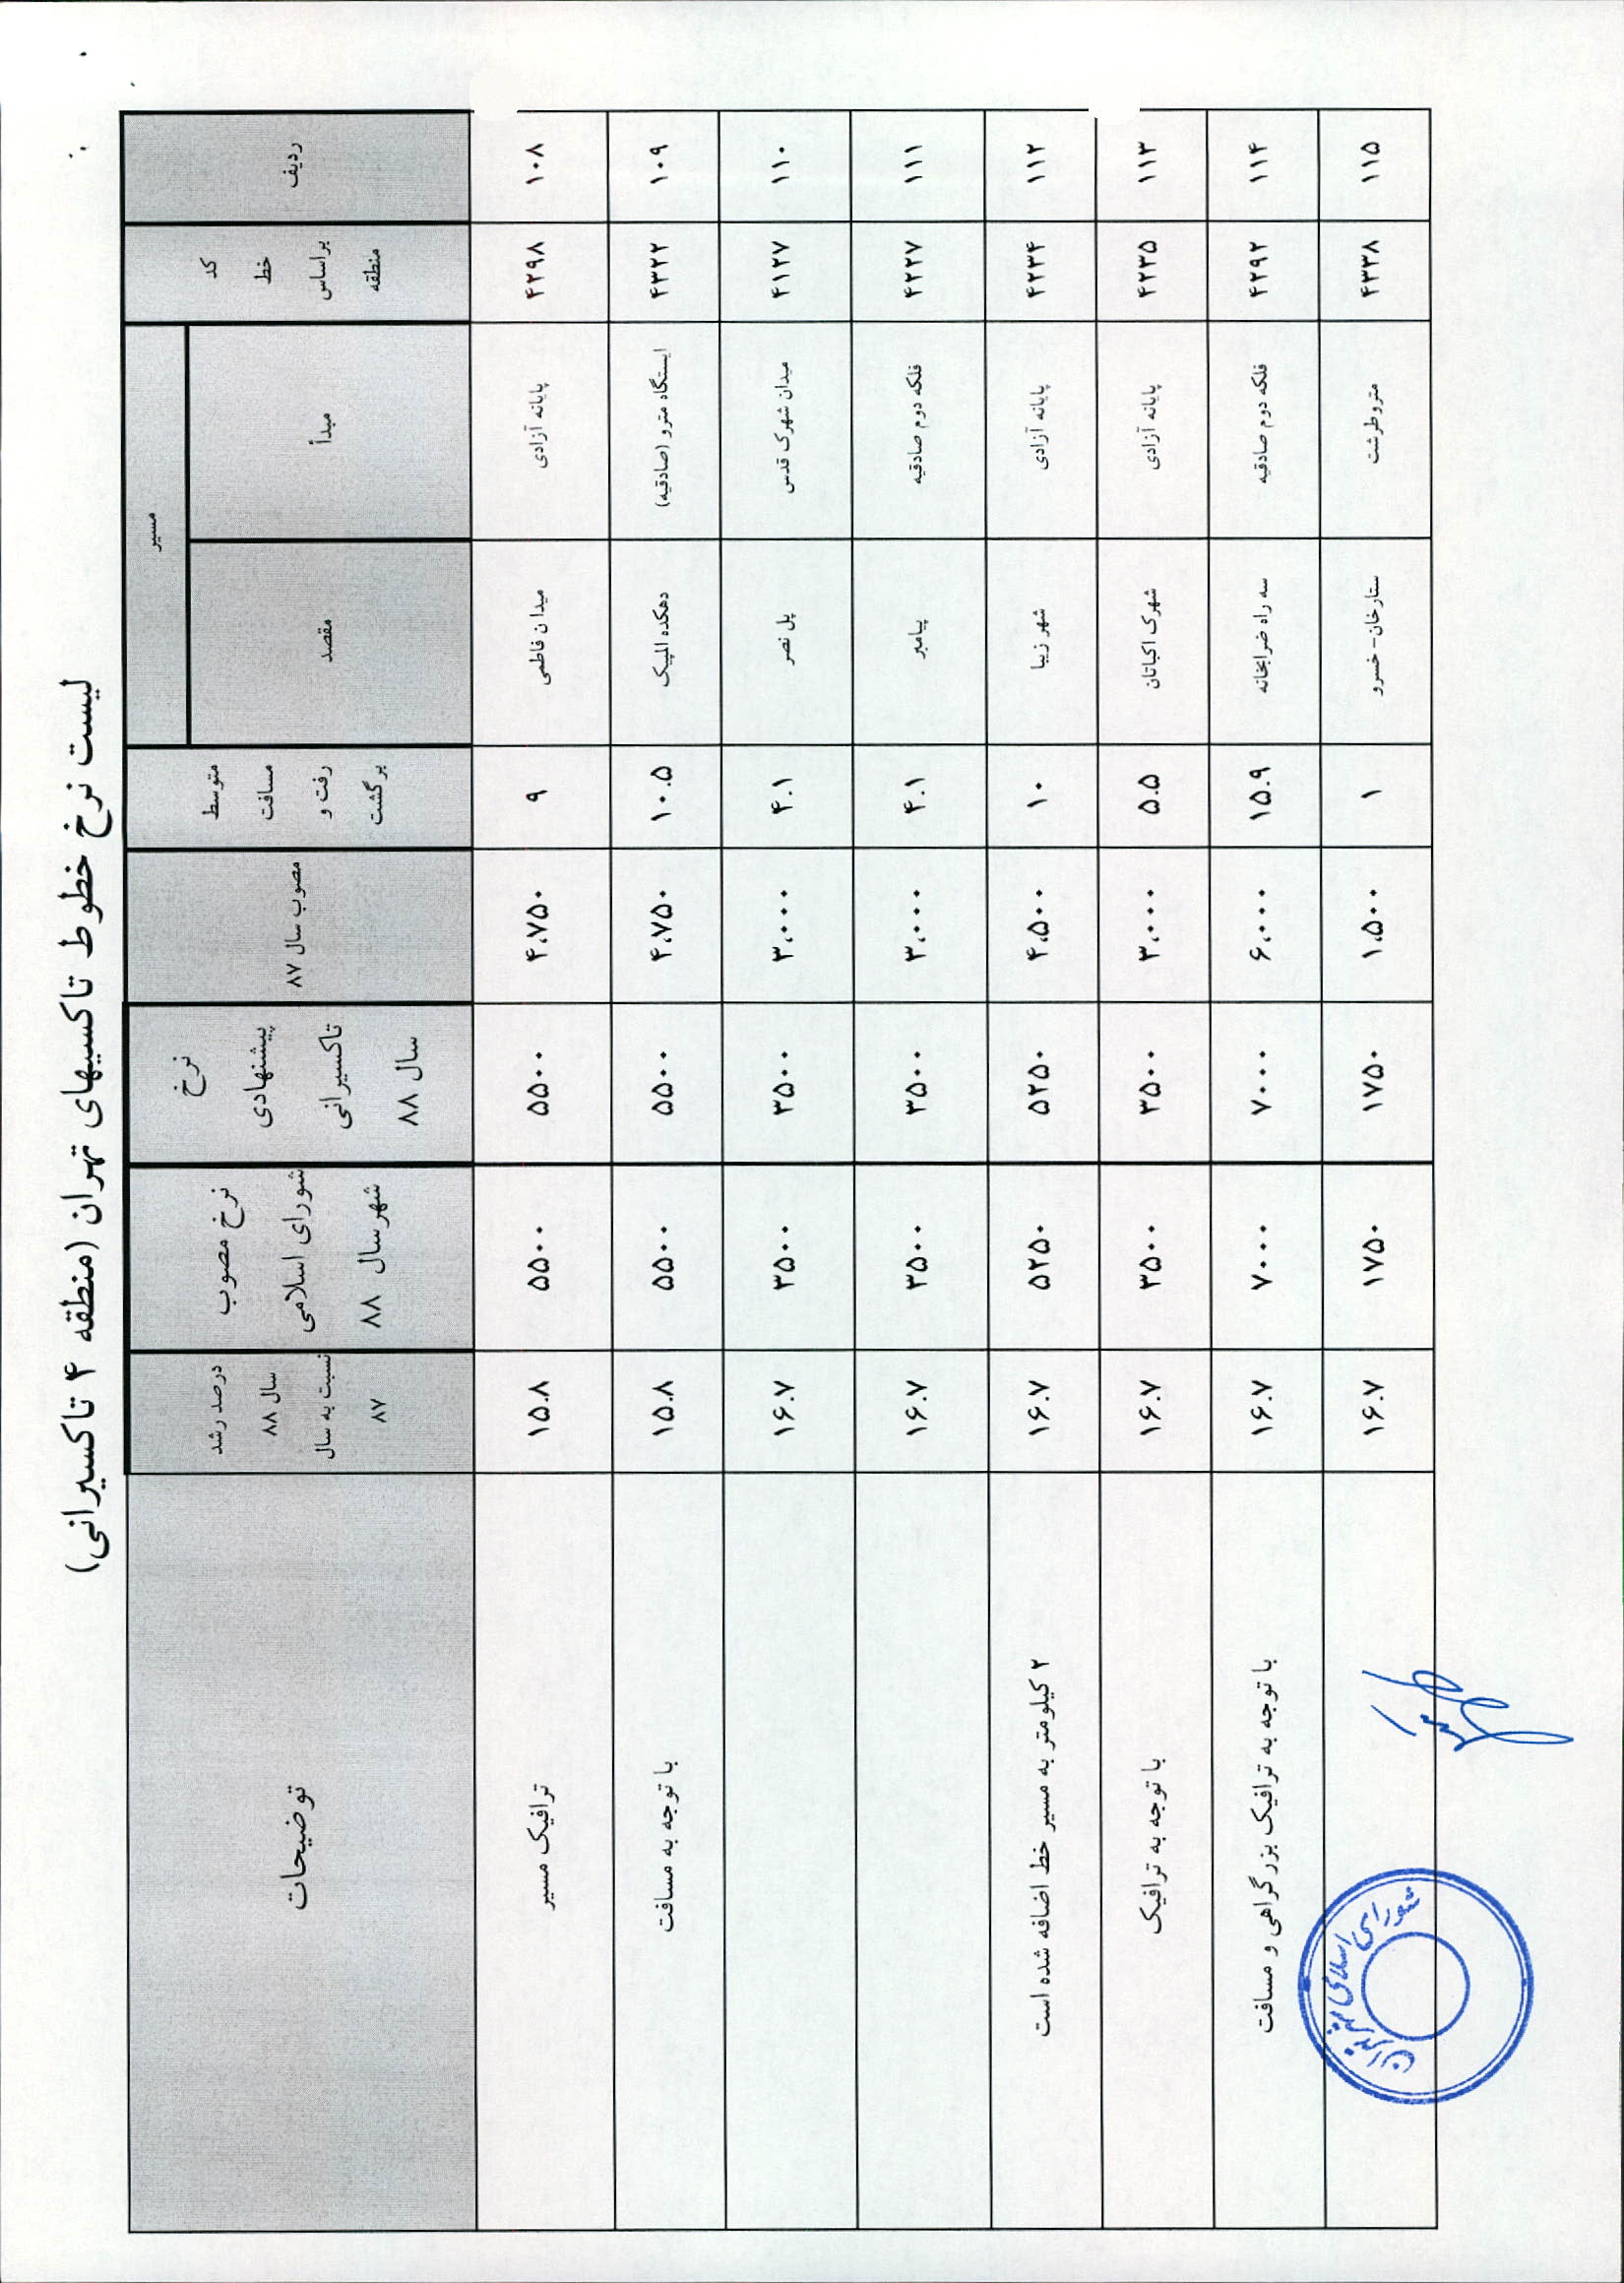 لیست نرخ خطوط تاکسیهای تهران (منطقه ۴ تاکسیرانی)
ردیف | کد خط براساس منطقه | مسیر | متوسط مسافت رفت و برگشت | مصوب سال ۸۷ | نرخ پیشنهادی تاکسیرانی سال ۸۸ | نرخ مصوب شورای اسلامی شهر سال ۸۸ | درصد رشد سال ۸۸ نسبت به سال ۸۷ | توضیحات
مبدأ | مقصد
۱۰۸ | ۴۲۹۸ | پایانه آزادی | میدان فاطمی | ۹ | ۴،۷۵۰ | ۵۵۰۰ | ۵۵۰۰ | ۱۵.۸ | ترافیک مسیر
۱۰۹ | ۴۳۲۲ | ایستگاه مترو (صادقیه) | دهکده المپیک | ۱۰.۵ | ۴،۷۵۰ | ۵۵۰۰ | ۵۵۰۰ | ۱۵.۸ | با توجه به مسافت
۱۱۰ | ۴۱۲۷ | میدان شهرک قدس | پل نصر | ۴.۱ | ۳،۰۰۰ | ۳۵۰۰ | ۳۵۰۰ | ۱۶.۷
۱۱۱ | ۴۲۲۷ | فلکه دوم صادقیه | پیامبر | ۴.۱ | ۳،۰۰۰ | ۳۵۰۰ | ۳۵۰۰ | ۱۶.۷
۱۱۲ | ۴۲۳۴ | پایانه آزادی | شهر زیبا | ۱۰ | ۴،۵۰۰ | ۵۲۵۰ | ۵۲۵۰ | ۱۶.۷ | ۲ کیلومتر به مسیر خط اضافه شده است
۱۱۳ | ۴۲۳۵ | پایانه آزادی | شهرک اکباتان | ۵.۵ | ۳،۰۰۰ | ۳۵۰۰ | ۳۵۰۰ | ۱۶.۷ | با توجه به ترافیک
۱۱۴ | ۴۲۹۲ | فلکه دوم صادقیه | سه راه ضرابخانه | ۱۵.۹ | ۶،۰۰۰ | ۷۰۰۰ | ۷۰۰۰ | ۱۶.۷ | با توجه به ترافیک بزرگراهی و مسافت
۱۱۵ | ۴۳۳۸ | متروطرشت | ستارخان- خسرو | ۱ | ۱،۵۰۰ | ۱۷۵۰ | ۱۷۵۰ | ۱۶.۷
شورای اسلامی شهر تهران